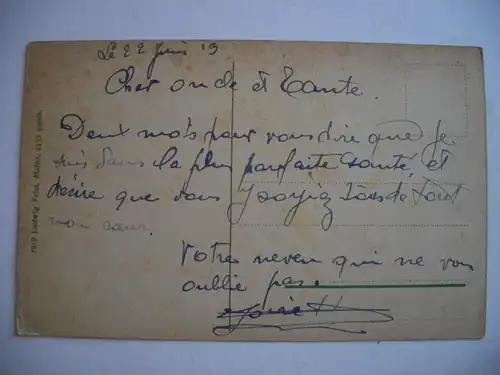 Le 22 Juin 19
Cher oncle et Tante.
Deux mots pour vous dire que je
suis dans la plus parfaite santé, et
désire que vous soyiez tous de tout
mon cœur.
Votre neveu qui ne vous
oublie pas.
1919 Ludwig Feist, Mainz